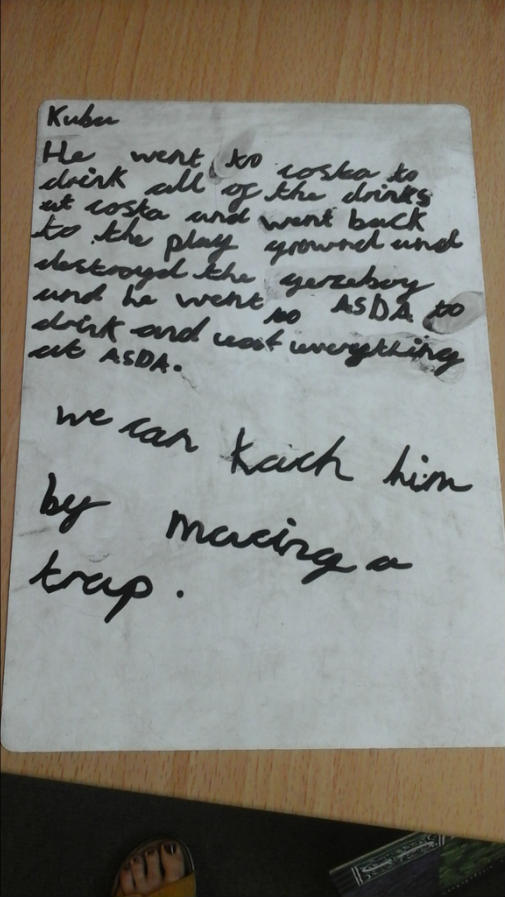 Kuba
He went to costa to
drink all of the drinks
at costa and went back
to the play grownd and
destroyd the gezeboy
and he went to ASDA to
drink and eat everything
at ASDA.
we can kach him
by making a
trap.